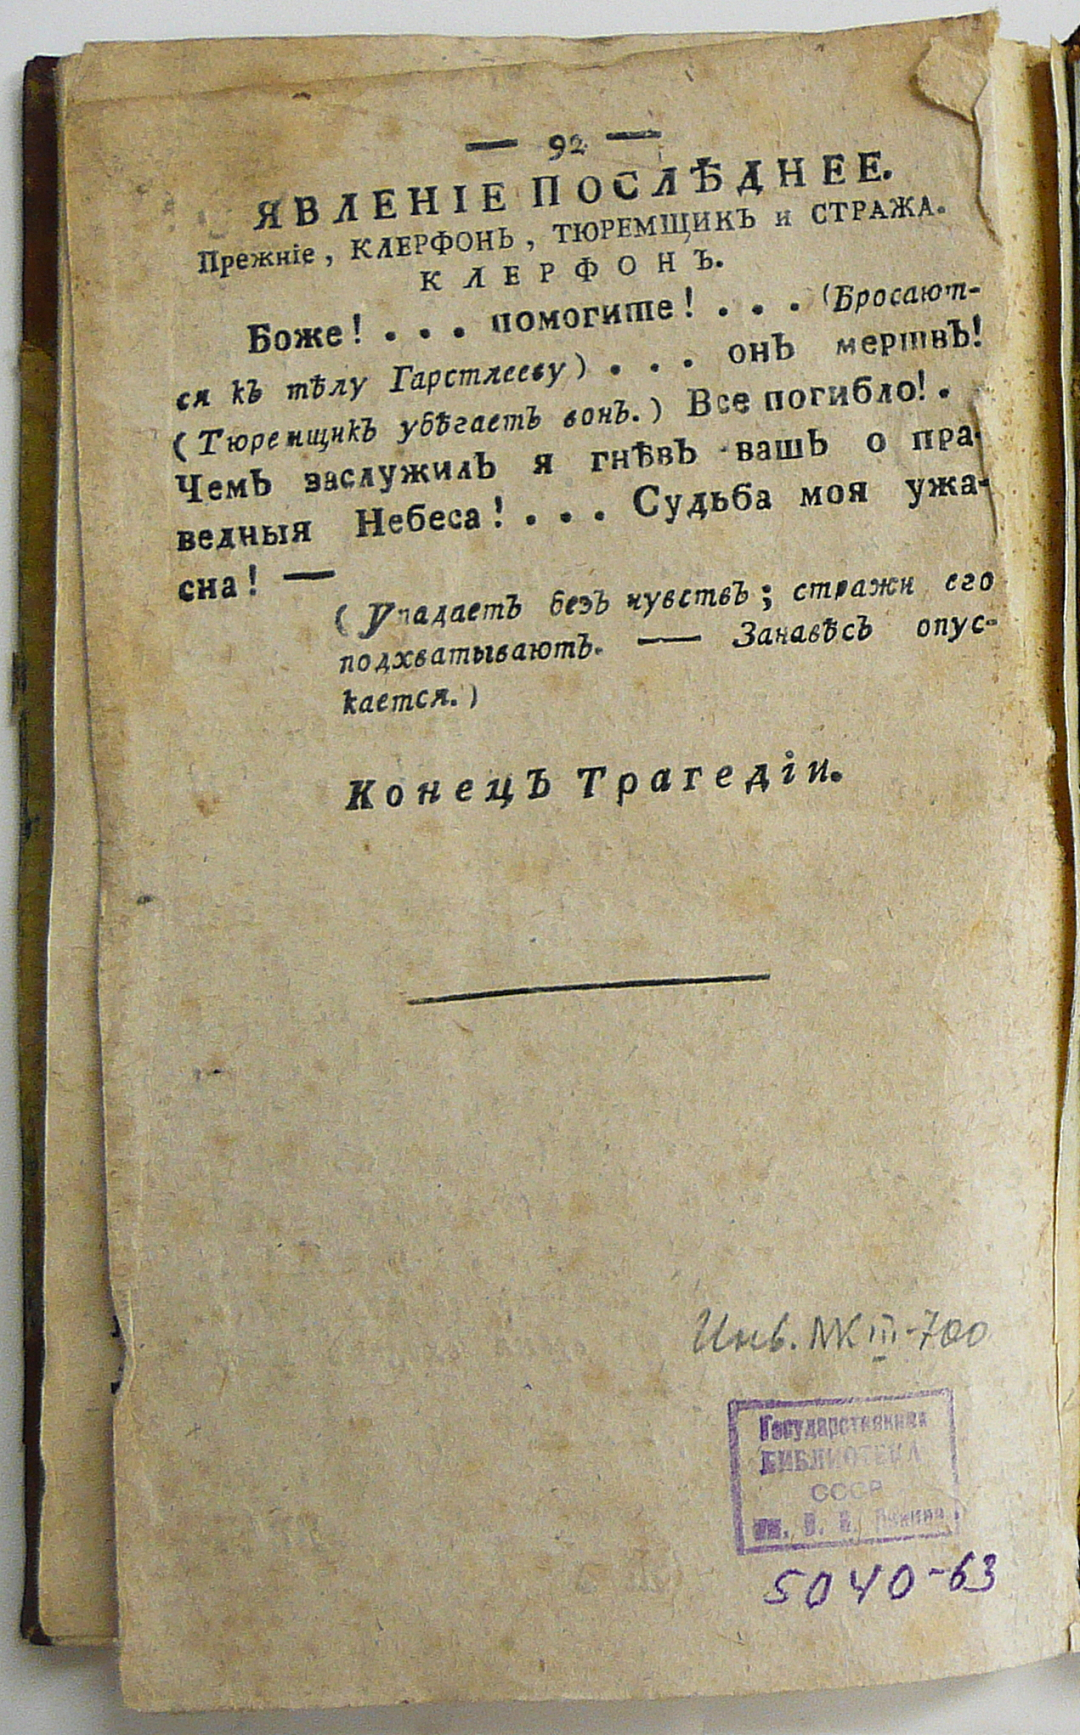 — 92 —
ЯВЛЕНІЕ ПОСЛѢДНЕЕ.
Прежніе, КЛЕРФОНЬ, ТЮРЕМЩИКЪ и СТРАЖА.
КЛЕРФОНЪ.
Боже! . . . помогите! . . . (Бросают-
ся къ тѣлу Гарстлееву) . . . онЪ мертвЪ!
(ТюремщикЪ убѣгаетЪ вонЪ.) Все погибло! .
ЧемЪ заслужилЪ я гнѣвЪ вашЪ о пра-
ведныя Небеса! . . . Судьба моя ужа-
сна! —
(УпадаетЪ безЪ чувствЪ; стражи его
подхватываютЪ. — ЗанавѣсЪ опус-
кается.)
КонецЪ Трагедіи.
Инв. МК III-700
Государственная
БИБЛИОТЕКА
СССР
им. В. И. Ленина
5040-63